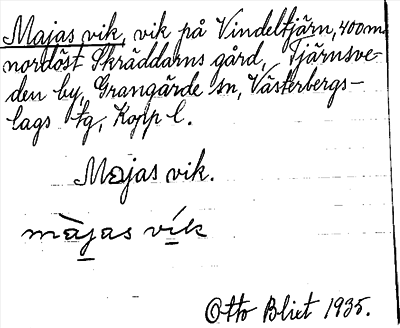 Majas vik, vik på Vindeltjärn, 400 m
nordöst Skräddarns gård, Tjärnsve-
den by, Grangärde sn, Västerbergs-
lags tg, Kopp l.
Majas vik.
màjas vík
Otto Blixt 1935.